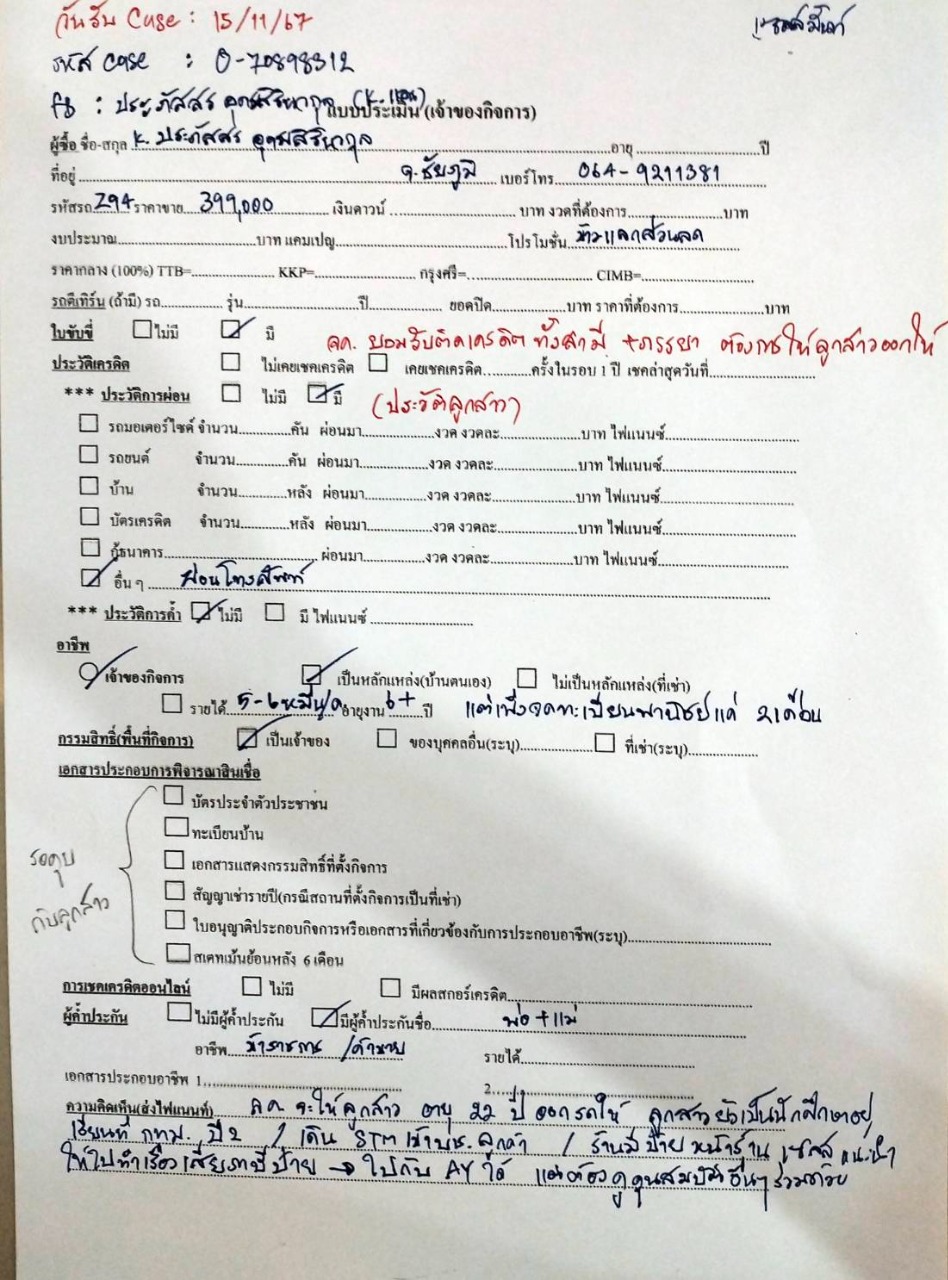 วันรับ Case : 15/11/67
เซลล์มิ้นท์
รหัส case : 0-70898312
fb : ประภัสสร อุดมสิริเนากุล
แบบประเมิน (เจ้าของกิจการ)
ผู้ซื้อ ชื่อ-สกุล K. ประภัสสร อุดมสิริเนากุล อายุ ปี
ที่อยู่ จ.ชัยภูมิ เบอร์โทร 064-9211381
รหัสรถ Z94 ราคาขาย 399,000 เงินดาวน์ บาท งวดที่ต้องการ บาท
งบประมาณ บาท แคมเปญ โปรโมชั่น ข้าวแลกส่วนลด
ราคากลาง (100%) TTB= KKP= กรุงศรี= CIMB=
รถตีเทิร์น (ถ้ามี) รถ รุ่น ปี ยอดปิด บาท ราคาที่ต้องการ บาท
ใบขับขี่ ไม่มี มี
ลค. ยอมรับติดเครดิต ทั้งสามี + ภรรยา ต้องการให้ลูกสาวออกให้
ประวัติเครดิต ไม่เคยเชคเครดิต เคยเชคเครดิต ครั้งในรอบ 1 ปี เชคล่าสุดวันที่
*** ประวัติการผ่อน ไม่มี มี (ประวัติลูกสาว)
รถมอเตอร์ไซด์ จำนวน คัน ผ่อนมา งวด งวดละ บาท ไฟแนนซ์
รถยนต์ จำนวน คัน ผ่อนมา งวด งวดละ บาท ไฟแนนซ์
บ้าน จำนวน หลัง ผ่อนมา งวด งวดละ บาท ไฟแนนซ์
บัตรเครดิต จำนวน หลัง ผ่อนมา งวด งวดละ บาท ไฟแนนซ์
กู้ธนาคาร ผ่อนมา งวด งวดละ บาท ไฟแนนซ์
อื่น ๆ ผ่อนโทรศัพท์
*** ประวัติการค้ำ ไม่มี มี ไฟแนนซ์
อาชีพ
เจ้าของกิจการ เป็นหลักแหล่ง(บ้านตนเอง) ไม่เป็นหลักแหล่ง(ที่เช่า)
รายได้ 5-6 หมื่น/ด อายุงาน 6+ ปี แต่เพิ่งจดทะเบียนพาณิชย์แค่ 2 เดือน
กรรมสิทธิ์(พื้นที่กิจการ) เป็นเจ้าของ ของบุคคลอื่น(ระบุ) ที่เช่า(ระบุ)
เอกสารประกอบการพิจารณาสินเชื่อ
บัตรประจำตัวประชาชน
ทะเบียนบ้าน
รอคุย
กับลูกสาว
เอกสารแสดงกรรมสิทธิ์ที่ตั้งกิจการ
สัญญาเช่ารายปี(กรณีสถานที่ตั้งกิจการเป็นที่เช่า)
ใบอนุญาติประกอบกิจการหรือเอกสารที่เกี่ยวข้องกับการประกอบอาชีพ(ระบุ)
สเตทเม้นย้อนหลัง 6 เดือน
การเชคเครดิตออนไลน์ ไม่มี มีผลสกอร์เครดิต
ผู้ค้ำประกัน ไม่มีผู้ค้ำประกัน มีผู้ค้ำประกันชื่อ พ่อ + แม่
อาชีพ ข้าราชการ / ค้าขาย รายได้
เอกสารประกอบอาชีพ 1. 2
ความคิดเห็น(ส่งไฟแนนท์) ลค. จะให้ลูกสาว อายุ 22 ปี ออกรถให้ ลูกสาวยังเป็นนักศึกษาอยู่
เรียนที่ กทม. ปี 2 / เดิน STM เข้าบช. ลูกค้า / ร้านมีป้ายหน้าร้าน เซลล์แนะนำ
ให้ไปทำเรื่องเสียภาษีป้าย → ไปกับ AY ได้ แต่ต้องดูคุณสมบัติอื่นๆ ร่วมด้วย